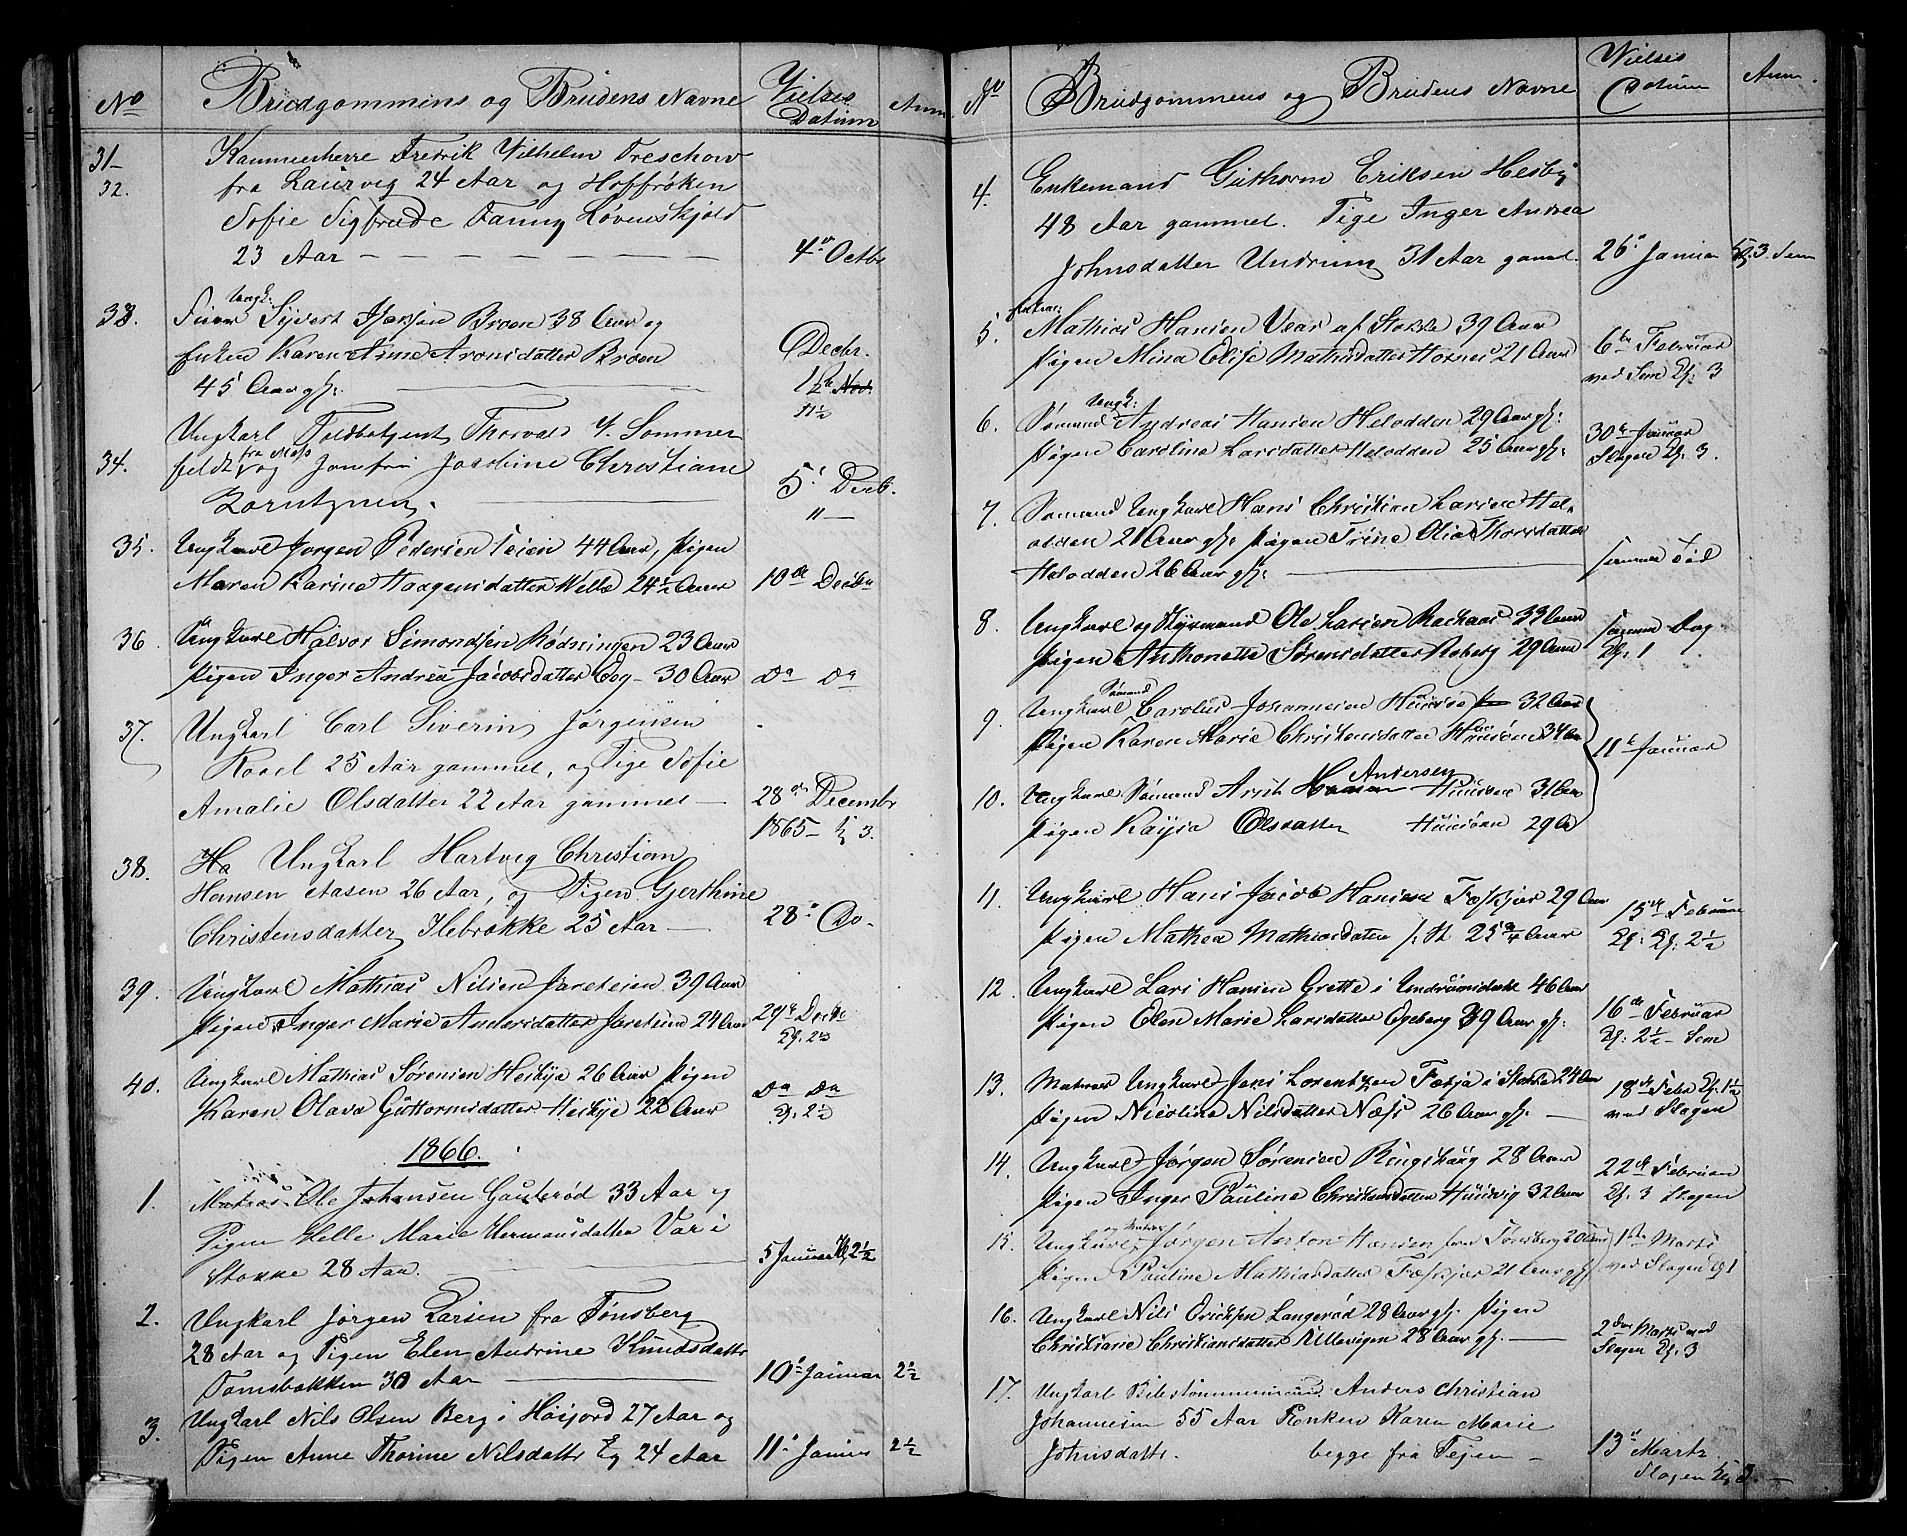 No Brudgommens og Brudens Navne Vielses Datum Anm
31-
32. Kammerherre Fredrik Wilhelm Treschow
fra Laurvig 24 Aar og Hoffrøken
Sofie Sigfrede Fanny Løvenskjold
23 Aar — 4de Octbr
33. Ungk: Syvert Broen 38 Aar og
Enken Karen Anne Aronsdatter Broen Decbr.
45 Aar gl:
Ungkarl Toldbetjent Thorvald Sommer
34. feldt fra Moss og Jomfru Jacobine Christiane 5 Decb.
Korntzen.
35. Ungkarl Jørgen Pedersen Teien 44 Aar, Pigen
Maren Karine Haagensdatter Welle 24½ Aar 10de Decbr
36. Ungkarl Halvor Simondsen Rødningen 23 Aar
Pigen Inger Andrea Jacobsdatter Eeg 30 Aar Do Do
37. Ungkarl Carl Siverin Jørgensen
Roael 25 Aar gammel, og Pige Sofie
Amalie Olsdatter 22 Aar gammel — 28de Decembr
1865 — 3.
38. Ha Ungkarl Hartvig Christian
Hansen Aasen 26 Aar, og Pigen Gjerthine
Christensdatter Ilebrække 25 Aar — 28de Do.
39. Ungkarl Mathias Nilsen Jareteien 39 Aar
Pigen Inger Marie Andersdatter Jareteien 24 Aar 29de Decbr
Kl. 2½
40. Ungkarl Mathias Sørensen Hesbye 26 Aar Pigen
Karen Olava Guttormsdatter Hesbye 22 Aar Do Do
Kl. 2½
1866.
1. Matros Ole Johansen Gauterød 33 Aar og
Pigen Helle Marie Hermansdatter Vær i
Stokke 28 Aar. 5 Januar Kl. 2½
2. Ungkarl Jørgen Larsen fra Tønsberg
28 Aar og Pigen Elen Andrine Knudsdatter
Tomsbakken 30 Aar — 10de Januar 2½
3. Ungkarl Nils Olsen Berg i Høijord 27 Aar og
Pigen Anne Thorine Nilsdatter Eg 24 Aar 11te Januar 2½
No Brudgommens og Brudens Navne Vielses Datum Anm.
4. Enkemand Guthorm Eriksen Hesby
48 Aar gammel. Pige Inger Andrea
Johnsdatter Undrum 31 Aar gamel. 26de Januar Kl. 3. Sem
5. Mathias Hansen Vear af Stokke 39 Aar
Pigen Mina Elise Mathisdatter Hornes 21 Aar 6te Februar
ved Sem Kl: 3
6. Sømand Ungk: Andreas Hansen Helodden 29 Aar gl:
Pigen Caroline Larsdatter Helodden 25 Aar gl: 30te Januar
Slagen Kl. 3.
7. Sømand Ungkarl Hans Christian Larsen Hel-
odden 21 Aar gl: Pigen Trine Olia Thorsdatter
Helodden 26 Aar gl: — samme Tid
8. Ungkarl og Styrmand Ole Larsen Rackaas 33 Aar
Pigen Anthonette Sørensdatter Roberg 29 Aar samme Dag
Kl: 1
9. Ungkarl Sømand Carolus Johannesen Husøe 32 Aar
Pigen Karen Marie Christensdatter Husøen 34 Aar 11te Januar
10. Ungkarl Sømand Andersen Husøen 31 Aar
Pigen Kaysa Olsdatter Husøen 29 Aar
11. Ungkarl Hans Jacob Hansen Foskjær 29 Aar
Pigen Mathea Mathiasdatter 25¾ Aar 15de Februar
Kl: 2½
12. Ungkarl Lars Hansen Grette i Undrumsdahl 46 Aar
Pigen Elen Marie Larsdatter Egeberg 39 Aar gl: 16de Februar
Kl: 2½ Sem
13. Matros Ungkarl Jens Lorentzen Foksja i Stokke 24 Aar
Pigen Nicoline Nilsdatter Næss 26 Aar gl. — 18de Febr Kl. 1½
ved Slagen
14. Ungkarl Jørgen Sørensen Ringshaug 28 Aar
Pigen Inger Pauline Christensdatter Husvig 32 Aar 22de Februar
Kl. 3 Slagen
15. Ungkarl og Matros Jørgen Anton Hansen fra Tønsberg 20 Aar
Pigen Pauline Mathiasdatter Foskjær 21 Aar gl. 1ste Marts
ved Slagen Kl 1
16. Ungkarl Nils Ericksen Langerød 28 Aar gl. Pigen
Christiane Christiansdatter Ullevigen 28 Aar gl. — 2den Marts ved
Slagen Kl. 3
17. Ungkarl Anders Christian
Johannesen 55 Aar Enken Karen Marie
Johnsdatter. begge fra Tejen — 13de Marts
Slagen Kl 3. —